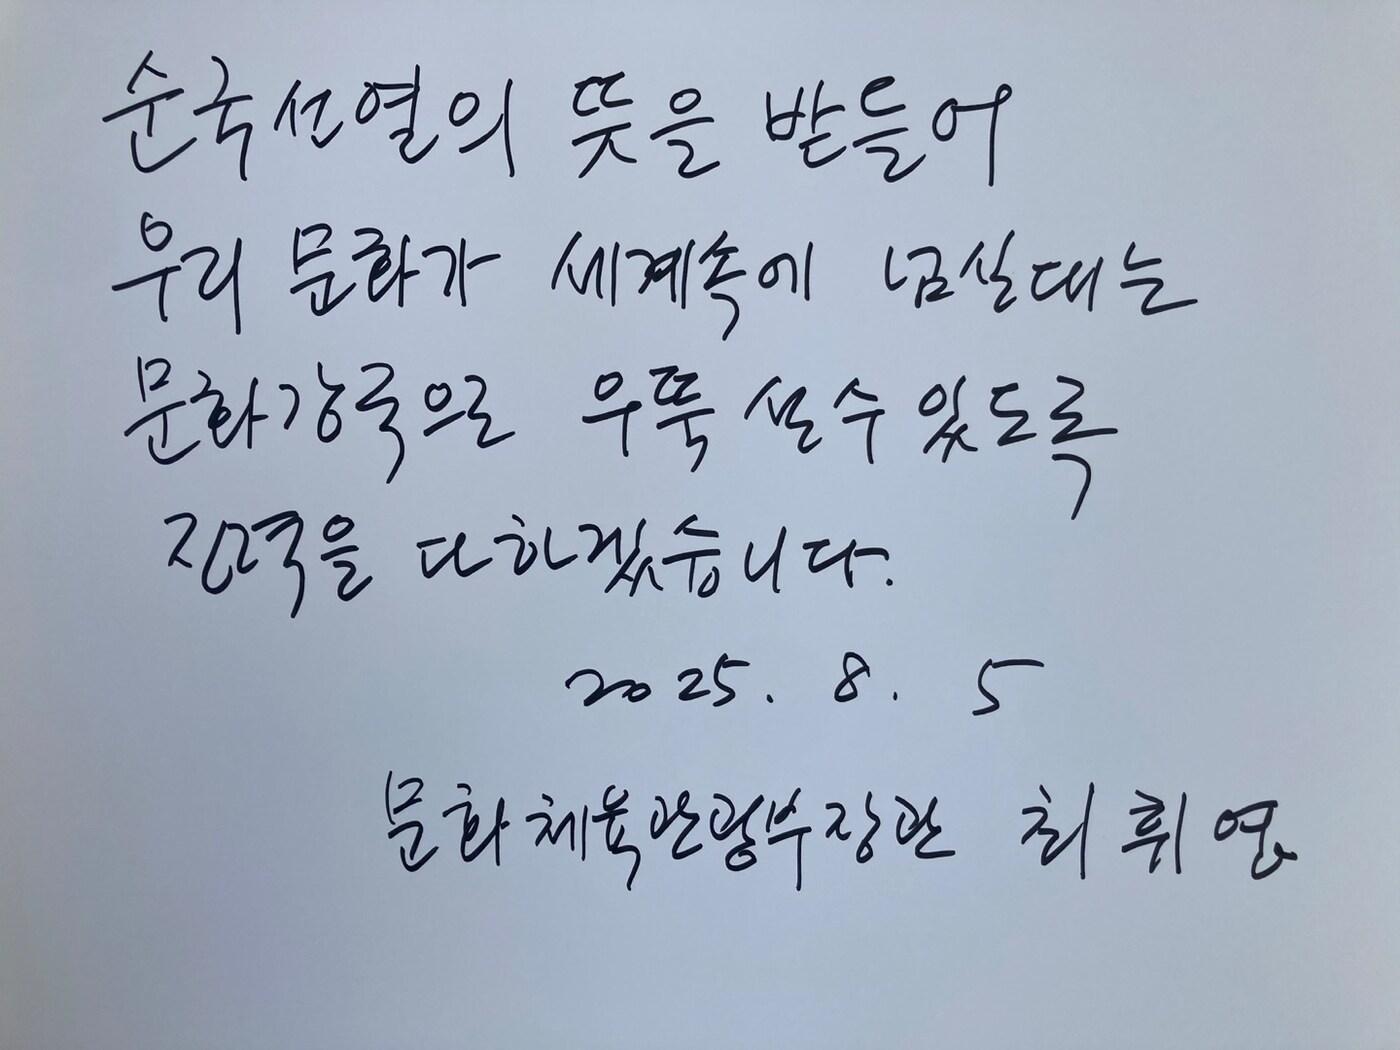 순국선열의 뜻을 받들어
우리 문화가 세계속에 넘실대는
문화강국으로 우뚝 설 수 있도록
진력을 다하겠습니다.
2025. 8. 5
문화체육관광부장관 최휘영